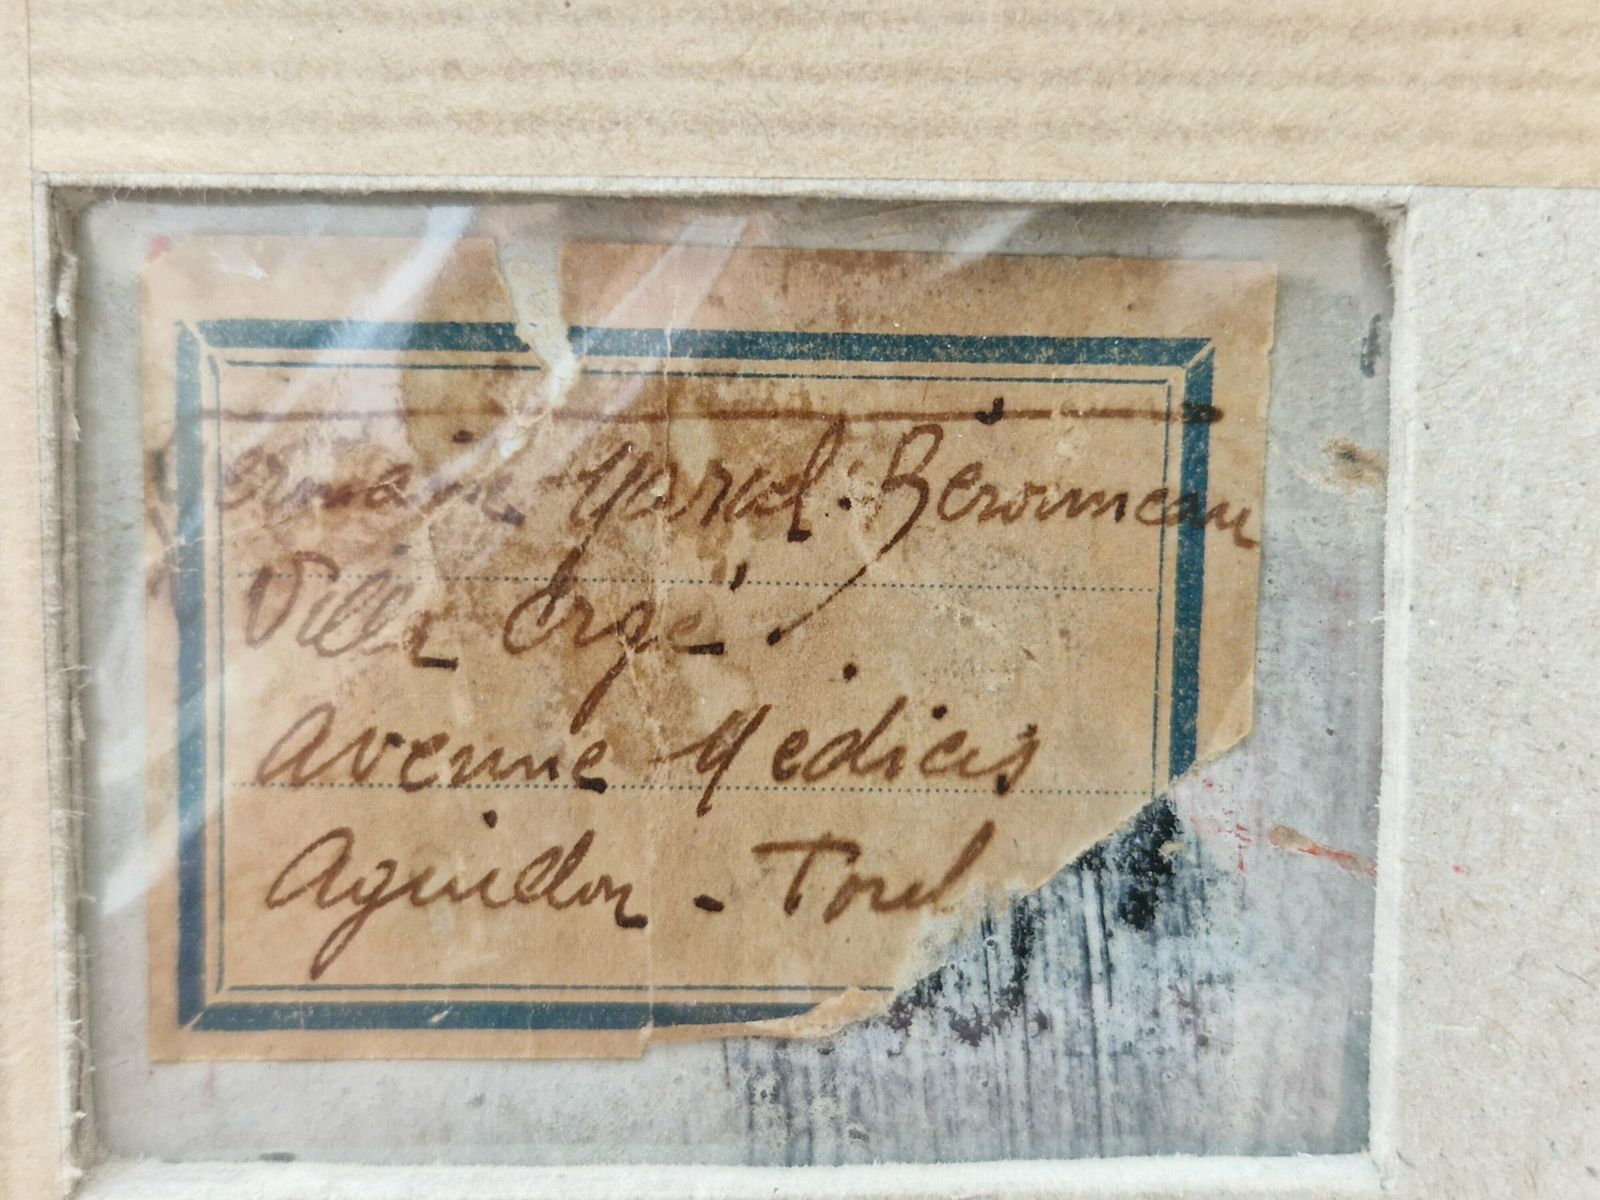 ermaine Marcel-Béronneau
Villa Orgé
Avenue Médicis
Aguillon - Toul